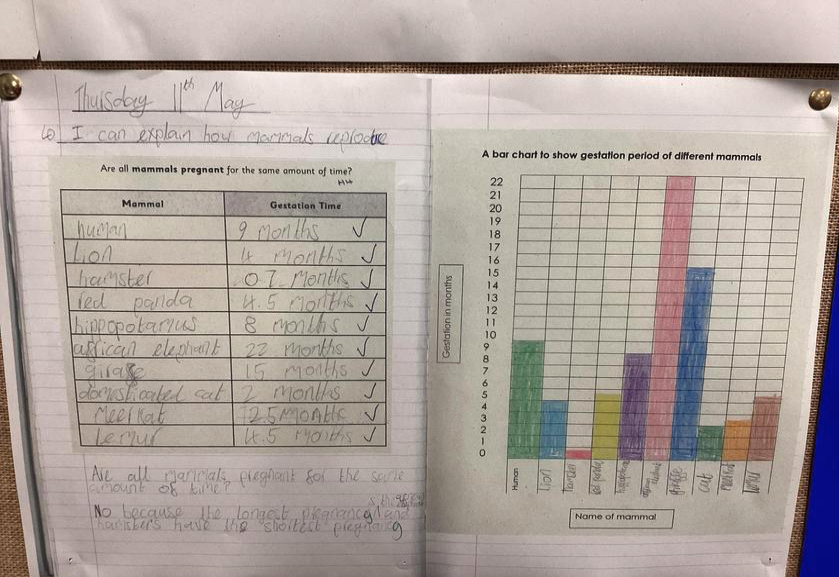 Thursday 11th May
LO I can explain how mammals reproduce
Are all mammals pregnant for the same amount of time?
Mammal Gestation Time
human 9 months ✓
Lion 4 months ✓
hamster 0.7 Months ✓
red panda 4.5 months ✓
hippopotamus 8 months ✓
african elephant 22 months ✓
girafe 15 months ✓
domesticated cat 2 months ✓
Meerkat 2.5 Months ✓
Lemur 4.5 months ✓
Are all mammals pregnant for the same
amount of time?
No because the longest pregnancy
and
hamsters have the shortest pregnancy
A bar chart to show gestation period of different mammals
22
21
20
19
18
17
16
15
14
13
12
11
10
9
8
7
6
5
4
3
2
1
0
Gestation in months
Human Lion hamster red panda hippopotamus elephant cat
Name of mammal